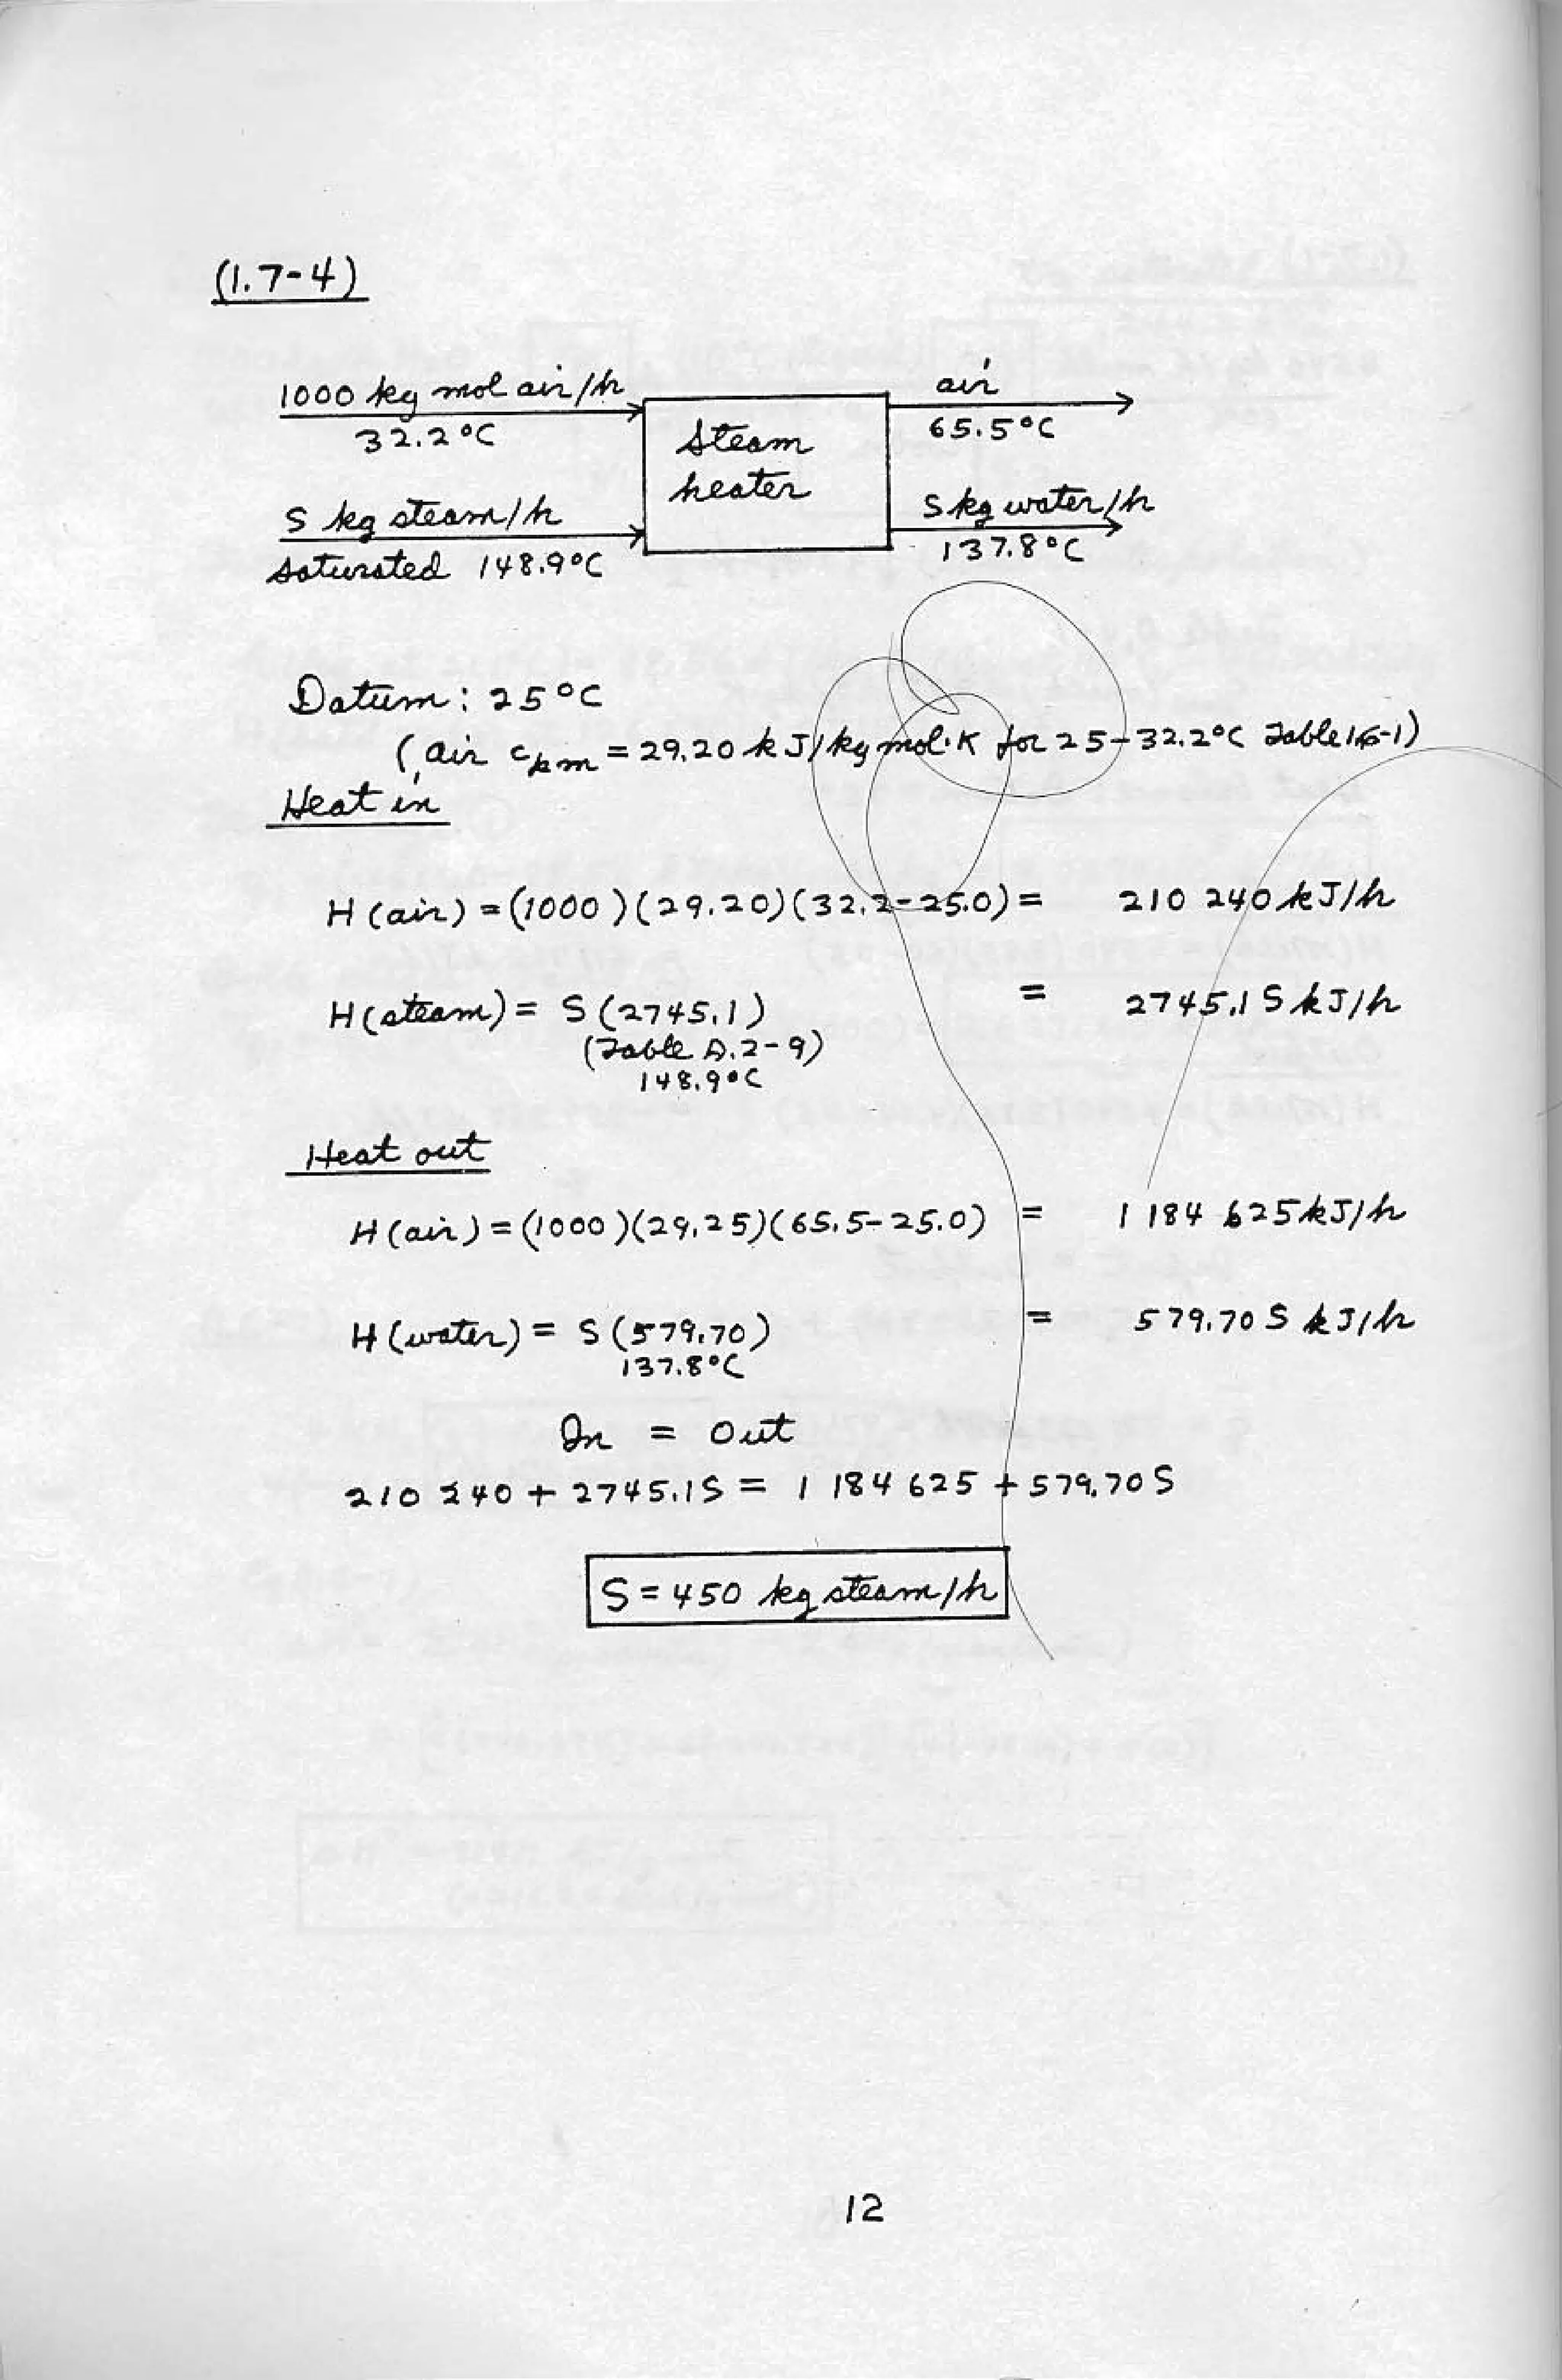 (1.7-4)
1000 kg mol air/h
32.2°C
S kg steam/h
saturated 148.9°C
Steam
heater
air
65.5°C
S kg water/h
137.8°C
Datum: 25°C
(air cpm = 29.20 kJ/kg mol·K for 25-32.2°C Table 1.6-1)
Heat in
H (air) = (1000)(29.20)(32.2-25.0) = 210 240 kJ/h
H (steam) = S (2745.1) = 2745.1 S kJ/h
(Table A.2-9)
148.9°C
Heat out
H (air) = (1000)(29.25)(65.5-25.0) = 1 184 625 kJ/h
H (water) = S (579.70) = 579.70 S kJ/h
137.8°C
In = Out
210 240 + 2745.1S = 1 184 625 + 579.70 S
S = 450 kg steam/h
12